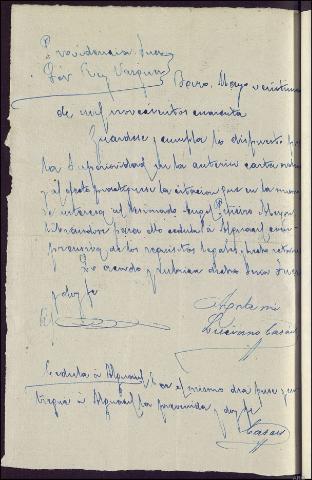 Providencia Juez
Sr. Rey Vazquez Boiro, Mayo veintiuno
de mil novecientos cuarenta
Guardese y cumpla lo dispuesto por
la Superioridad en la anterior carta orden
y al efecto practiquese la citacion que en la misma
se interesa al Angel Piñeiro
librandose para ello cedula à Alguacil
de los requisitos legales,
Lo acordo y rubrica dicho Sr. Juez
y doy fe
Ante mi
Luciano Casais
Cedula à Alguacil En el mismo dia puse y en
tregué à Alguacil la prevenida y doy fe
Casais